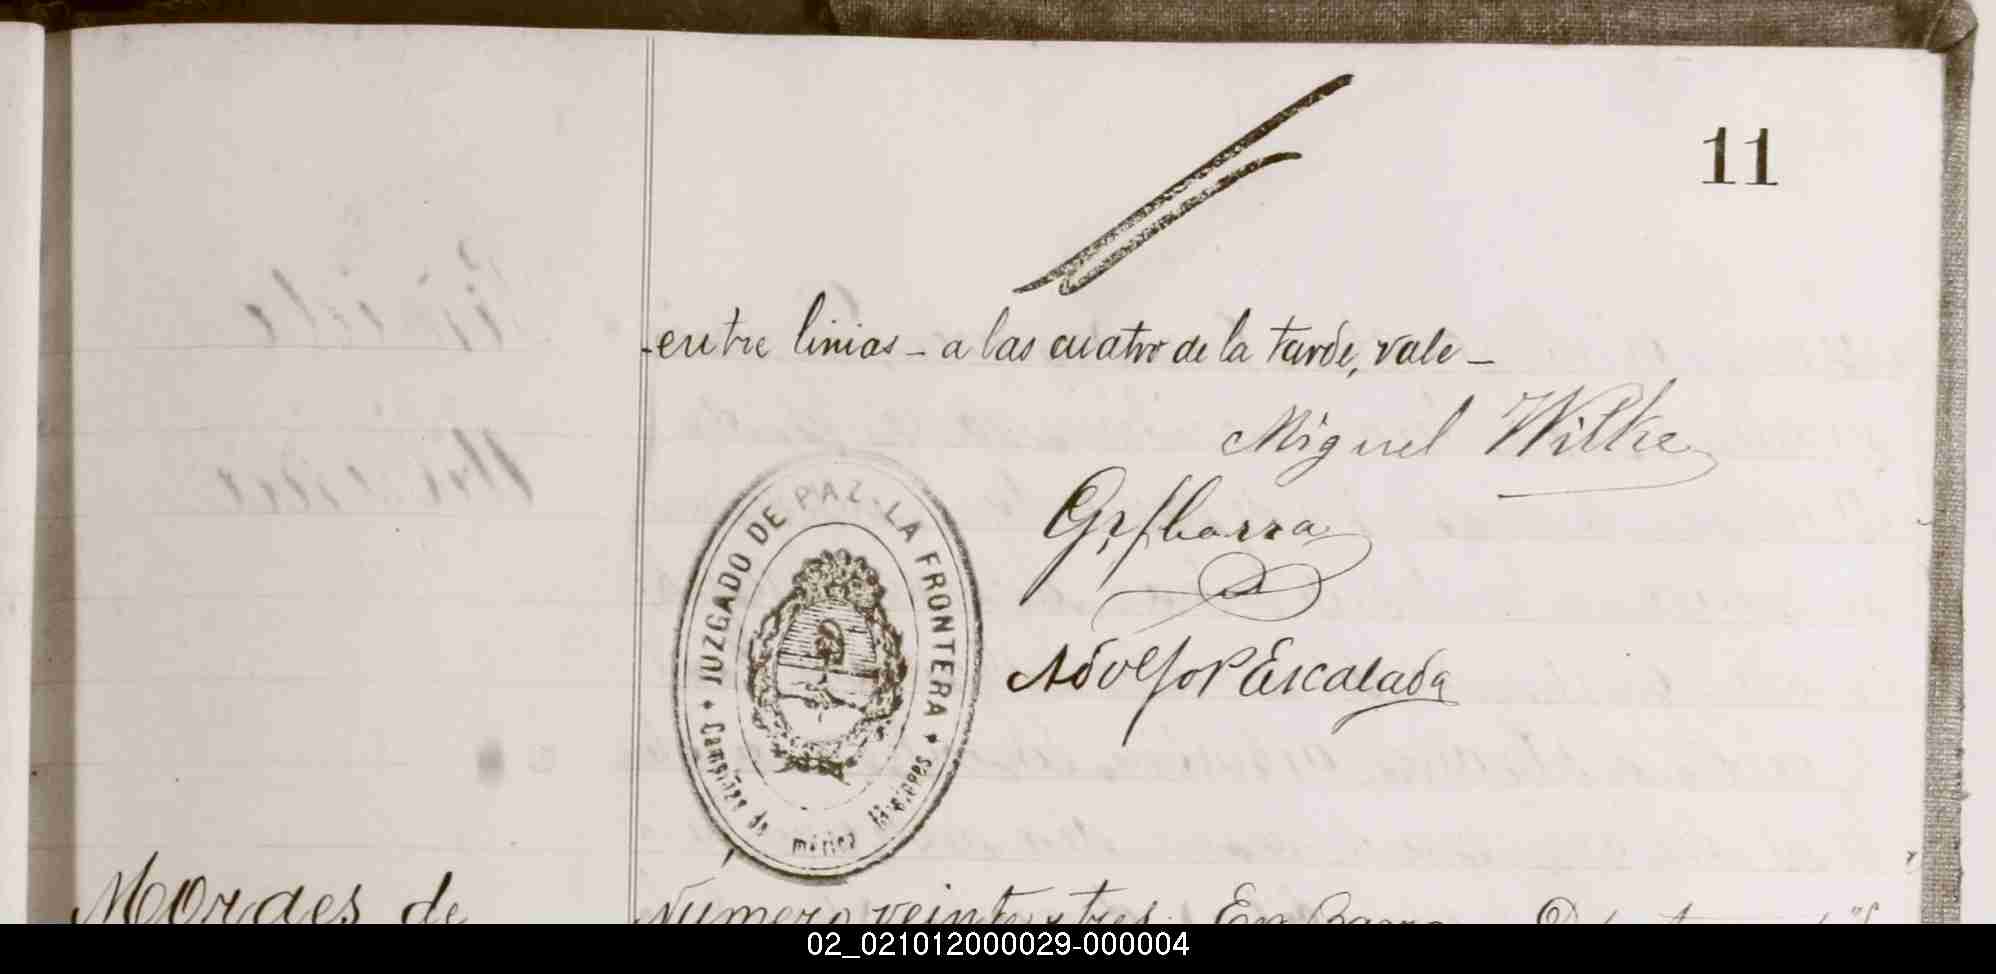 11
-entre linias - a las cuatro de la tarde, vale -
Miguel Wilke
G. Ybarra
Adolfo P Escalada
JUZGADO DE PAZ - LA FRONTERA
Campiñas de mérica Misiones
Moraes de
Número veinte y tres. En Barra
02_021012000029-000004